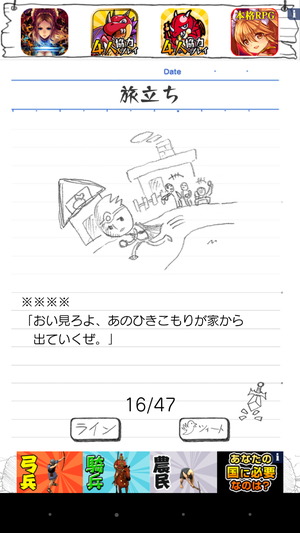 4人協力プレイ
4人協力プレイ
本格RPG
Date
旅立ち
※※※※
「おい見ろよ、あのひきこもりが家から
出ていくぜ。」
16/47
ライン
ツイート
弓兵
騎兵
農民
あなたの
国に必要
なのは?